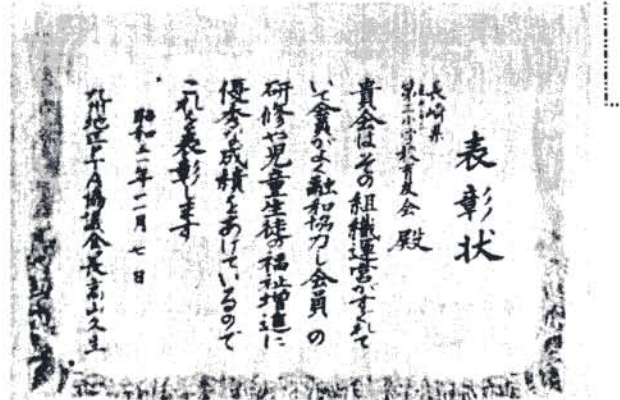 表彰状
長崎県
第二小学校育友会 殿
貴会はその組織運営がすぐれて
いて会員がよく融和協力し会員の
研修や児童生徒の福祉増進に
優秀な成績をあげているので
これを表彰します
昭和五一年十一月七日
九州地区PTA協議会長高山久生